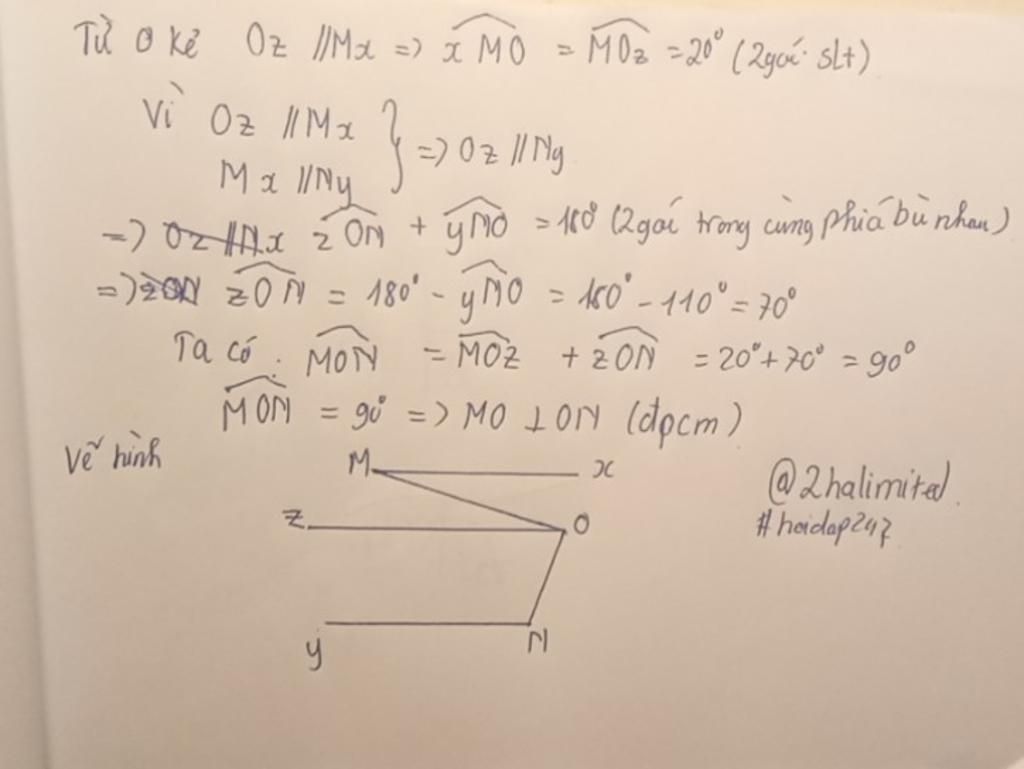 Từ O kẻ Oz // Mx => xMO = MOz = 20° (2 góc slt)
Vì Oz // Mx } => Oz // Ny
Mx // Ny
=> zON + yNO = 180° (2 góc trong cùng phía bù nhau)
=> zON = 180° - yNO = 180° - 110° = 70°
Ta có: MON = MOz + zON = 20° + 70° = 90°
MON = 90° => MO ⊥ ON (đpcm)
Vẽ hình
M x
@2halimited.
z O
#hoidap247
y N